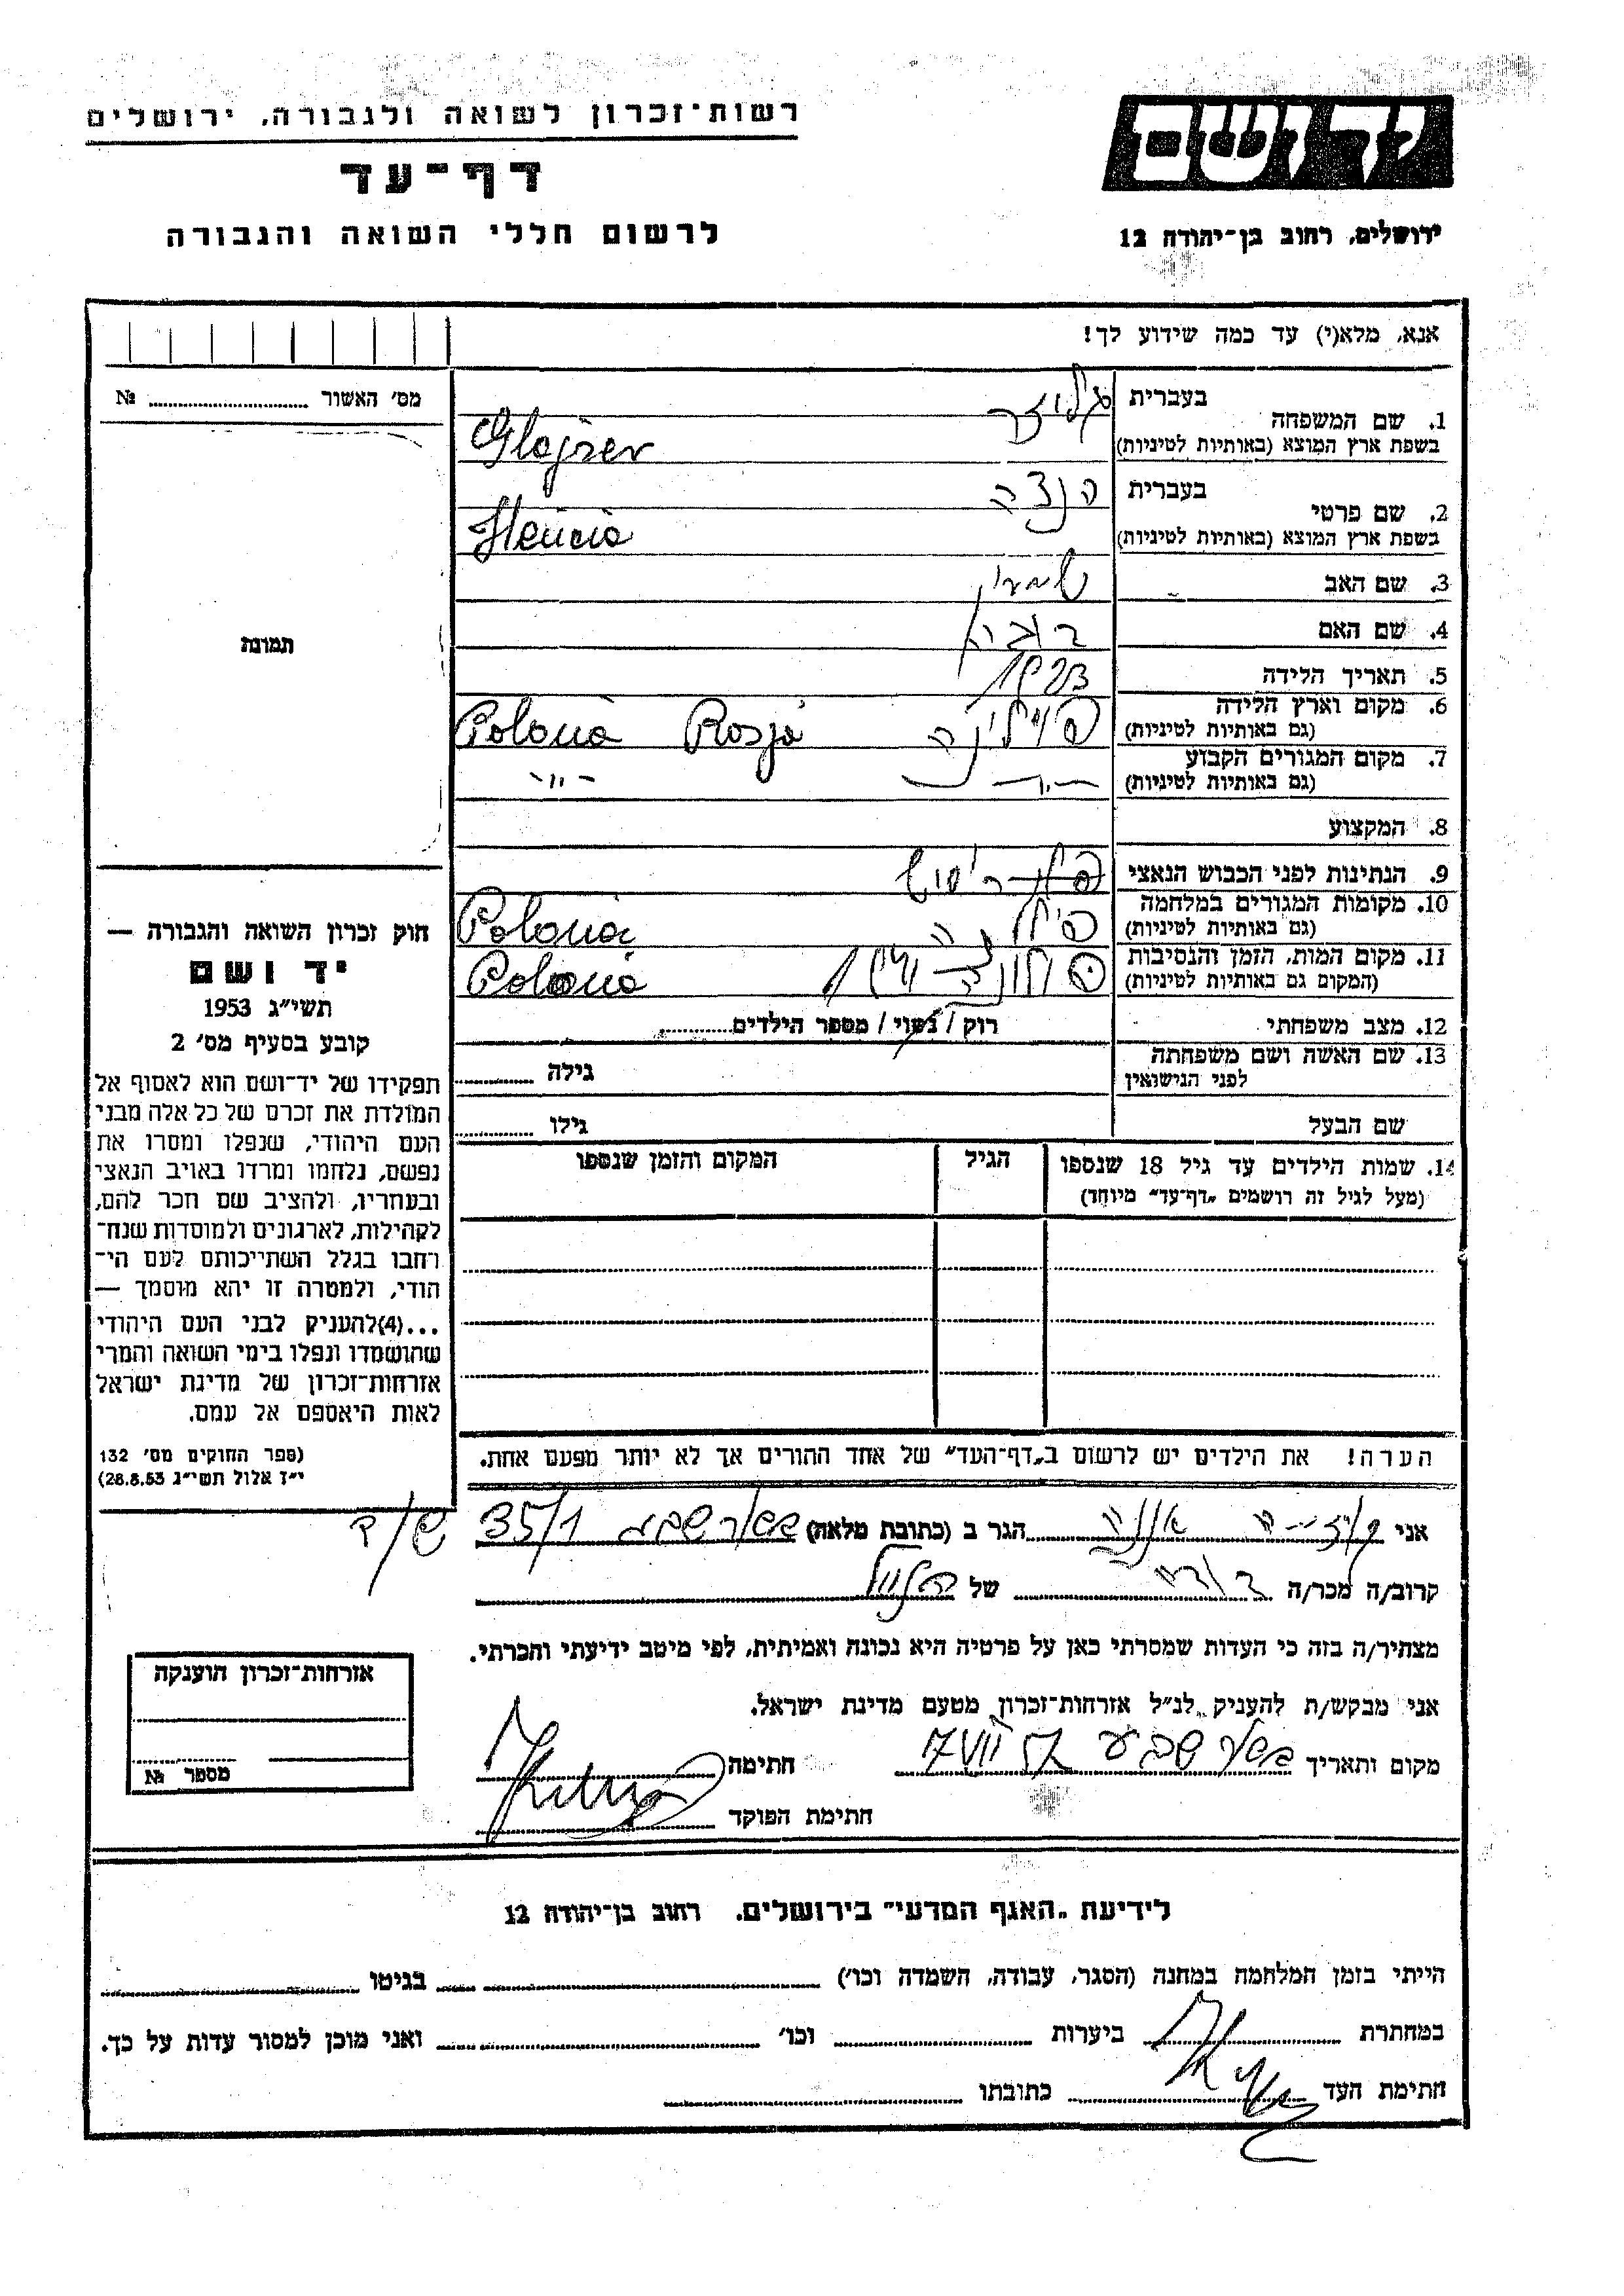 רשות־זכרון לשואה ולגבורה, ירושלים
דף־עד
לרשום חללי השואה והגבורה
יד ושם
ירושלים, רחוב בן־יהודה 12
אנא, מלא(י) עד כמה שידוע לך!
מס׳ האשור № 
תמונת
חוק זכרון השואה והגבורה —
יד ושם
תשי״ג 1953
קובע בסעיף מס׳ 2
תפקידו של יד־ושם הוא לאסוף אל
המולדת את זכרם של כל אלה מבני
העם היהודי, שנפלו ומסרו את
נפשם, נלחמו ומרדו באויב הנאצי
ובעוזריו, ולהציב שם וזכר להם,
לקהילות, לארגונים ולמוסדות שנח־
רבו בגלל השתייכותם לעם הי־
הודי, ולמטרה זו יהא מוסמך —
...(4)להעניק לבני העם היהודי
שהושמדו ונפלו בימי השואה והמרי
אזרחות־זכרון של מדינת ישראל
לאות היאספם אל עמם.
(ספר החוקים מס׳ 132
י״ז אלול תשי״ג 28.8.53)
1. שם המשפחה בעברית גלויזר
בשפת ארץ המוצא (באותיות לטיניות) Glojzer
2. שם פרטי בעברית הנצה
בשפת ארץ המוצא (באותיות לטיניות) Hencia
3. שם האב שמעון
4. שם האם
5. תאריך הלידה 1923
6. מקום וארץ הלידה (גם באותיות לטיניות) Polonia
7. מקום המגורים הקבוע (גם באותיות לטיניות) -"-
8. המקצוע
9. הנתינות לפני הכבוש הנאצי
10. מקומות המגורים במלחמה (גם באותיות לטיניות) Polonia
11. מקום המות, הזמן והנסיבות (המקום גם באותיות לטיניות) Polonia
12. מצב משפחתי רוק / נשוי / מספר הילדים
13. שם האשה ושם משפחתה לפני הנישואין גילה
שם הבעל גילו
14. שמות הילדים עד גיל 18 שנספו (מעל לגיל זה רושמים „דף־עד״ מיוחד) הגיל המקום והזמן שנספו
הערה! את הילדים יש לרשום ב„דף־העד״ של אחד ההורים אך לא יותר מפעם אחת.
אני אנה הגר ב (כתובת מלאה) באר שבע 35/1
קרוב/ה מכר/ה של
מצהיר/ה בזה כי העדות שמסרתי כאן על פרטיה היא נכונה ואמיתית, לפי מיטב ידיעתי והכרתי.
אני מבקש/ת להעניק לנ״ל אזרחות־זכרון מטעם מדינת ישראל.
מקום ותאריך באר שבע חתימה
חתימת הפוקד
אזרחות־זכרון הוענקה
מספר №
לידיעת „האגף המדעי״ בירושלים, רחוב בן־יהודה 12
הייתי בזמן המלחמה במחנה (הסגר, עבודה, השמדה וכו׳) בגיטו
במחתרת ביערות וכו׳ ואני מוכן למסור עדות על כך.
חתימת העד כתובתו